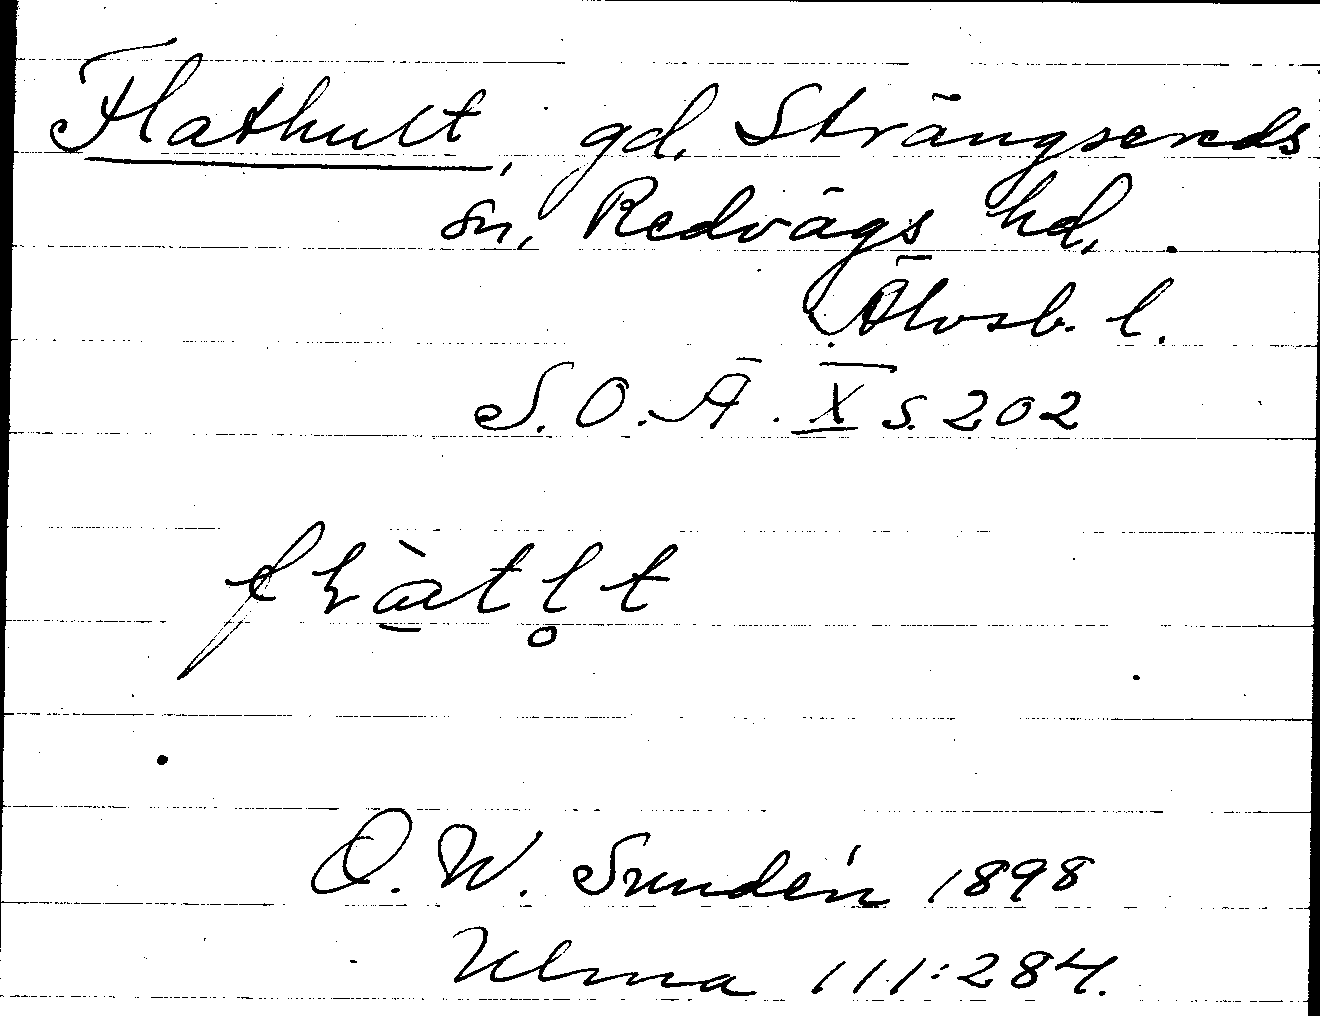 Flathult, gd. Strängsereds
sn, Redvägs hd,
Älvsb. l.
S. O. Ä. X s. 202
O. W. Sundén 1898
Ulma 111:284.